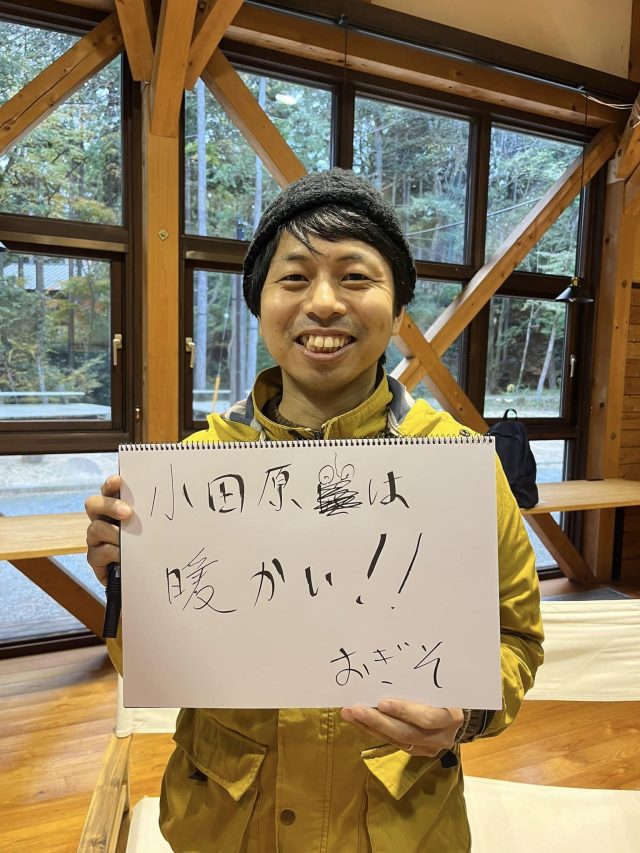 小田原は
暖かい!!
おぎそ